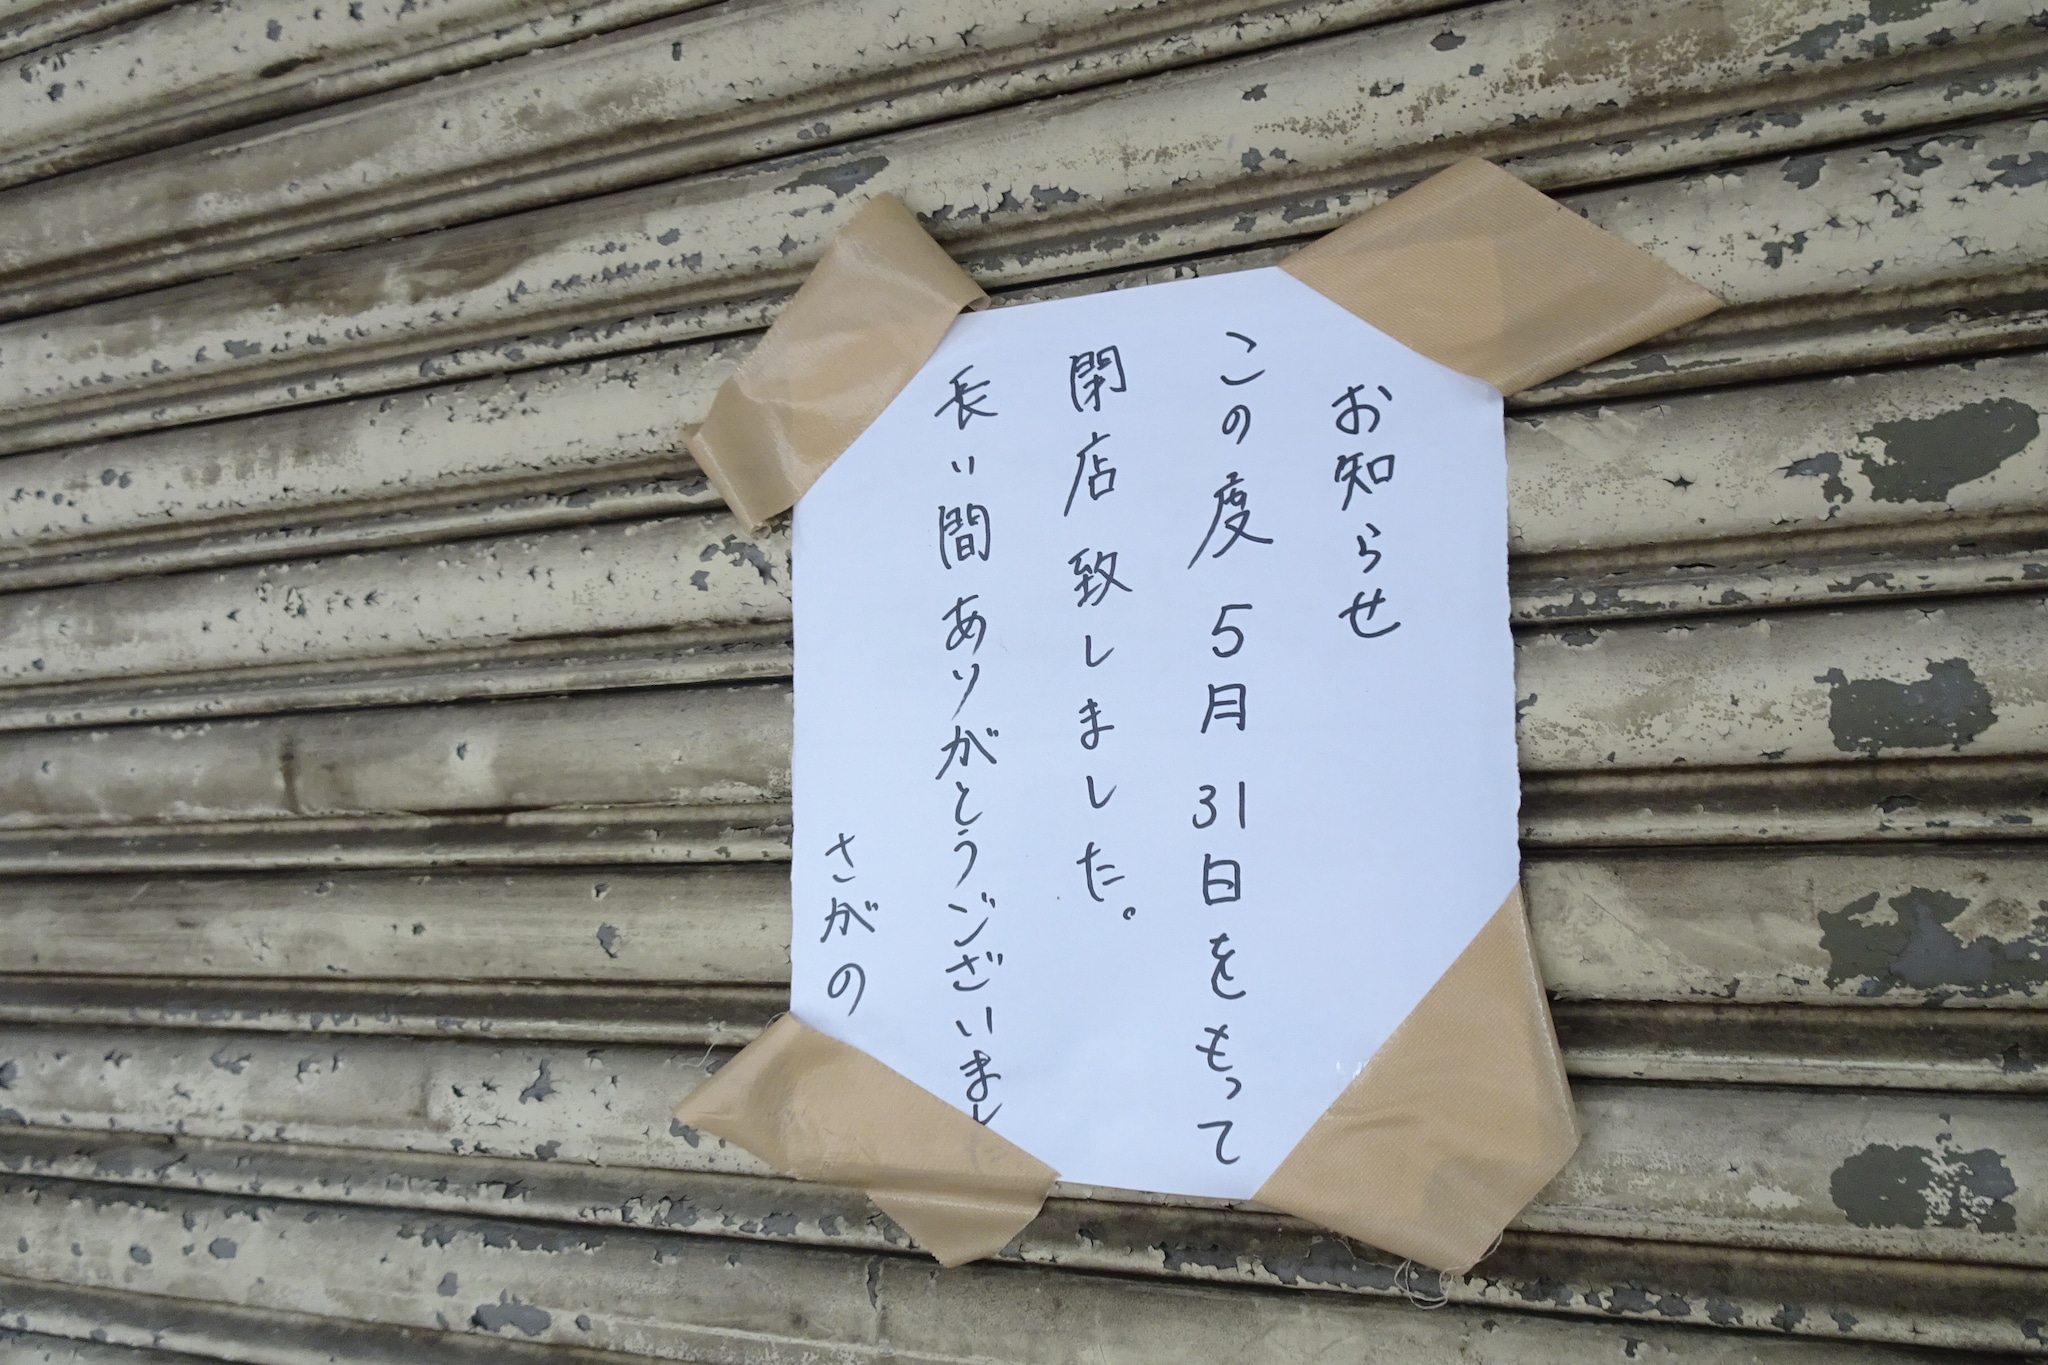 お知らせ
この度 5月31日をもって
閉店致しました。
長い間ありがとうございまし
さがの